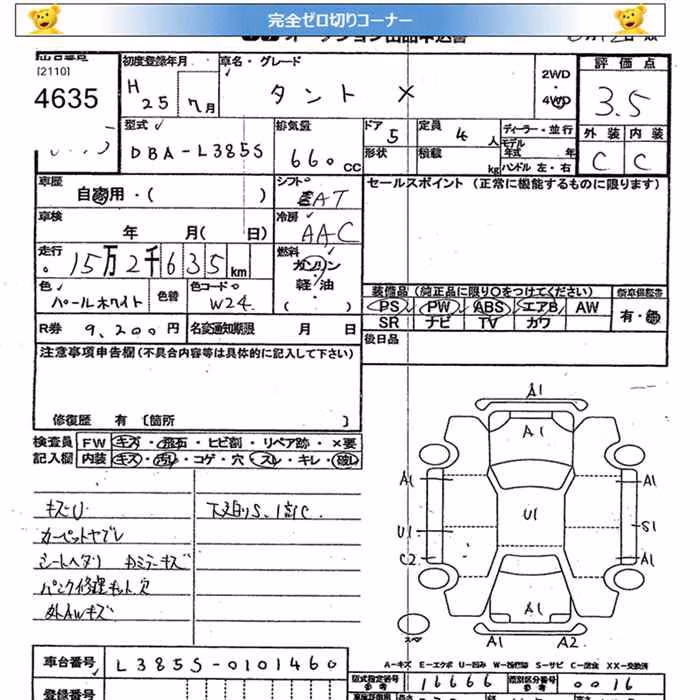 完全ゼロ切りコーナー
[2110]
4635
初度登録年月 車名・グレード
H 25 7月 タント X
2WD・4WD
評価点
3.5
外装 内装
C C
型式 排気量 ドア 定員 ディーラー・並行
DBA-L385S 660cc 5 4人 モデル年式 年
形状 積載 kg ハンドル 左・右
車歴 自家用・( )
シフト AT
セールスポイント (正常に機能するものに限ります)
車検 年 月( 日)
冷房 AAC
走行 15万2千635km
燃料 ガソリン・軽・油 ( )
色 パールホワイト 色替 色コード W24
装備品 (純正品に限り○をつけてください)
PS PW ABS エアB AW 有・無
SR ナビ TV カワ
R券 9,200円 名変通知期限 月 日
後日品
注意事項申告欄(不具合内容等は具体的に記入して下さい)
修復歴 有 〔箇所 〕
検査員 FW キズ・飛石・ヒビ割・リペア跡・×要
記入欄 内装 キズ・汚れ・コゲ・穴・スレ・キレ・破れ
キズU 下廻りS、1部C.
カーペットヤブレ
シートヘタリ
パンク修理キット欠
外AWキズ
A1
A1
A1 A1
U1
U1 S1
C2 A1
A1
スペア
A1 A2
A-キズ E-エクボ U-凹み W-補修跡 S-サビ C-腐食 XX-交換済
車台番号 L385S-0101460
型式指定番号 参考 16666 類別区分番号 参考 0016
登録番号